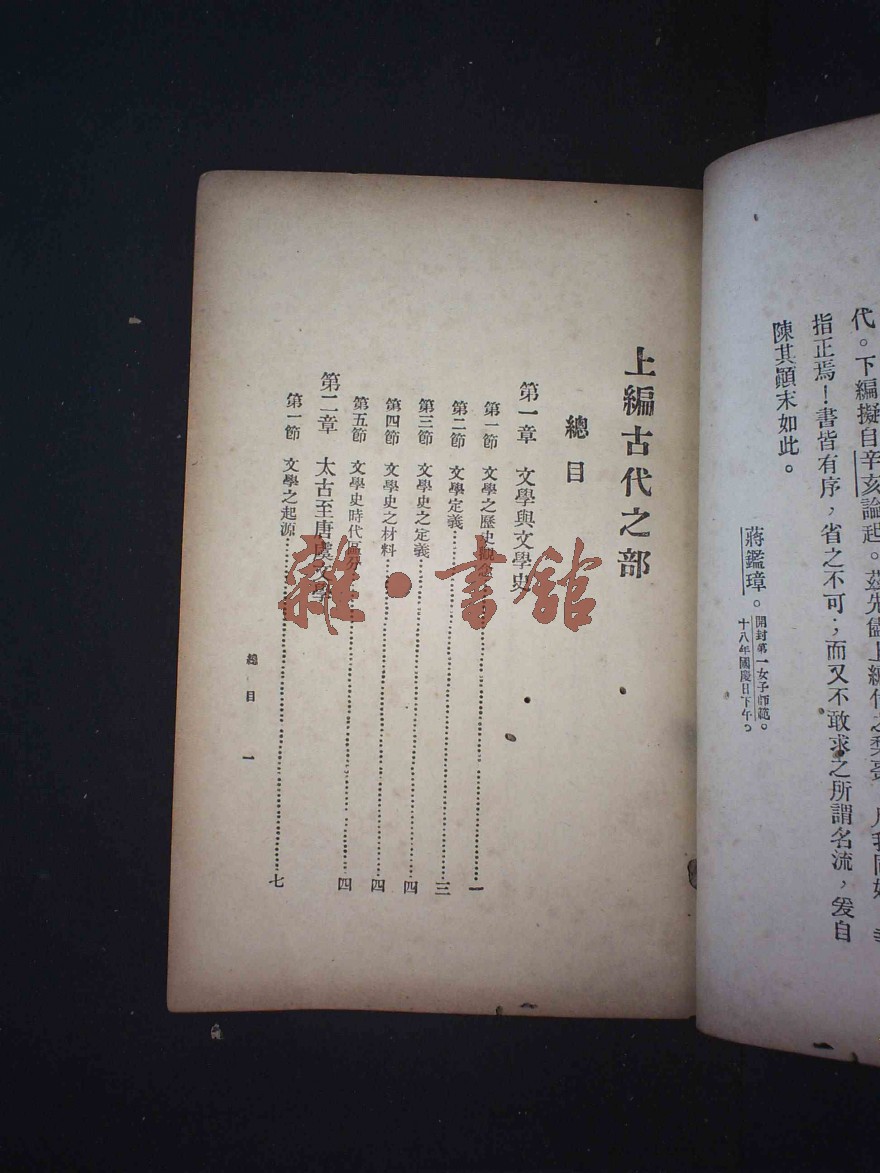 代。下編擬自辛亥論起。茲先儘上編付之梨棗
指正焉！書皆有序，省之不可；而又不敢求之所謂名流，爰自
陳其顚末如此。
蔣鑑璋。
開封第一女子師範。
十八年國慶日下午。
上編古代之部
總目
第一章 文學與文學史
第一節 文學之歷史觀念……一
第二節 文學定義……三
第三節 文學史之定義……四
第四節 文學史之材料……四
第五節 文學史時代區分……四
第二章 太古至唐虞文學
第一節 文學之起源……七
總目 一
雜·書館